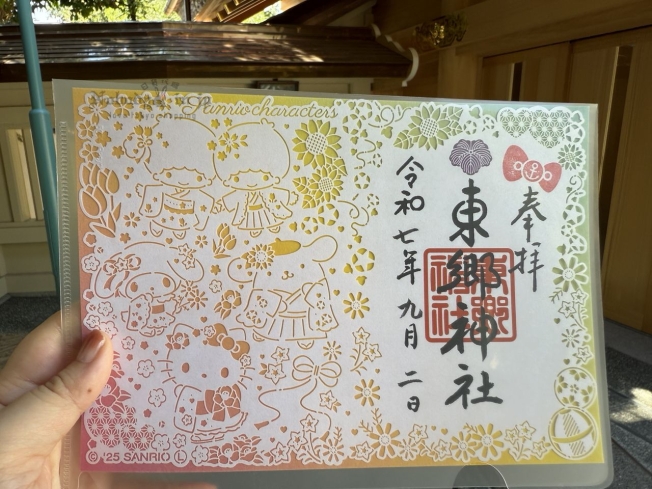 Sanrio characters
奉拝
東郷神社
令和七年九月二日
© '25 SANRIO Ⓛ